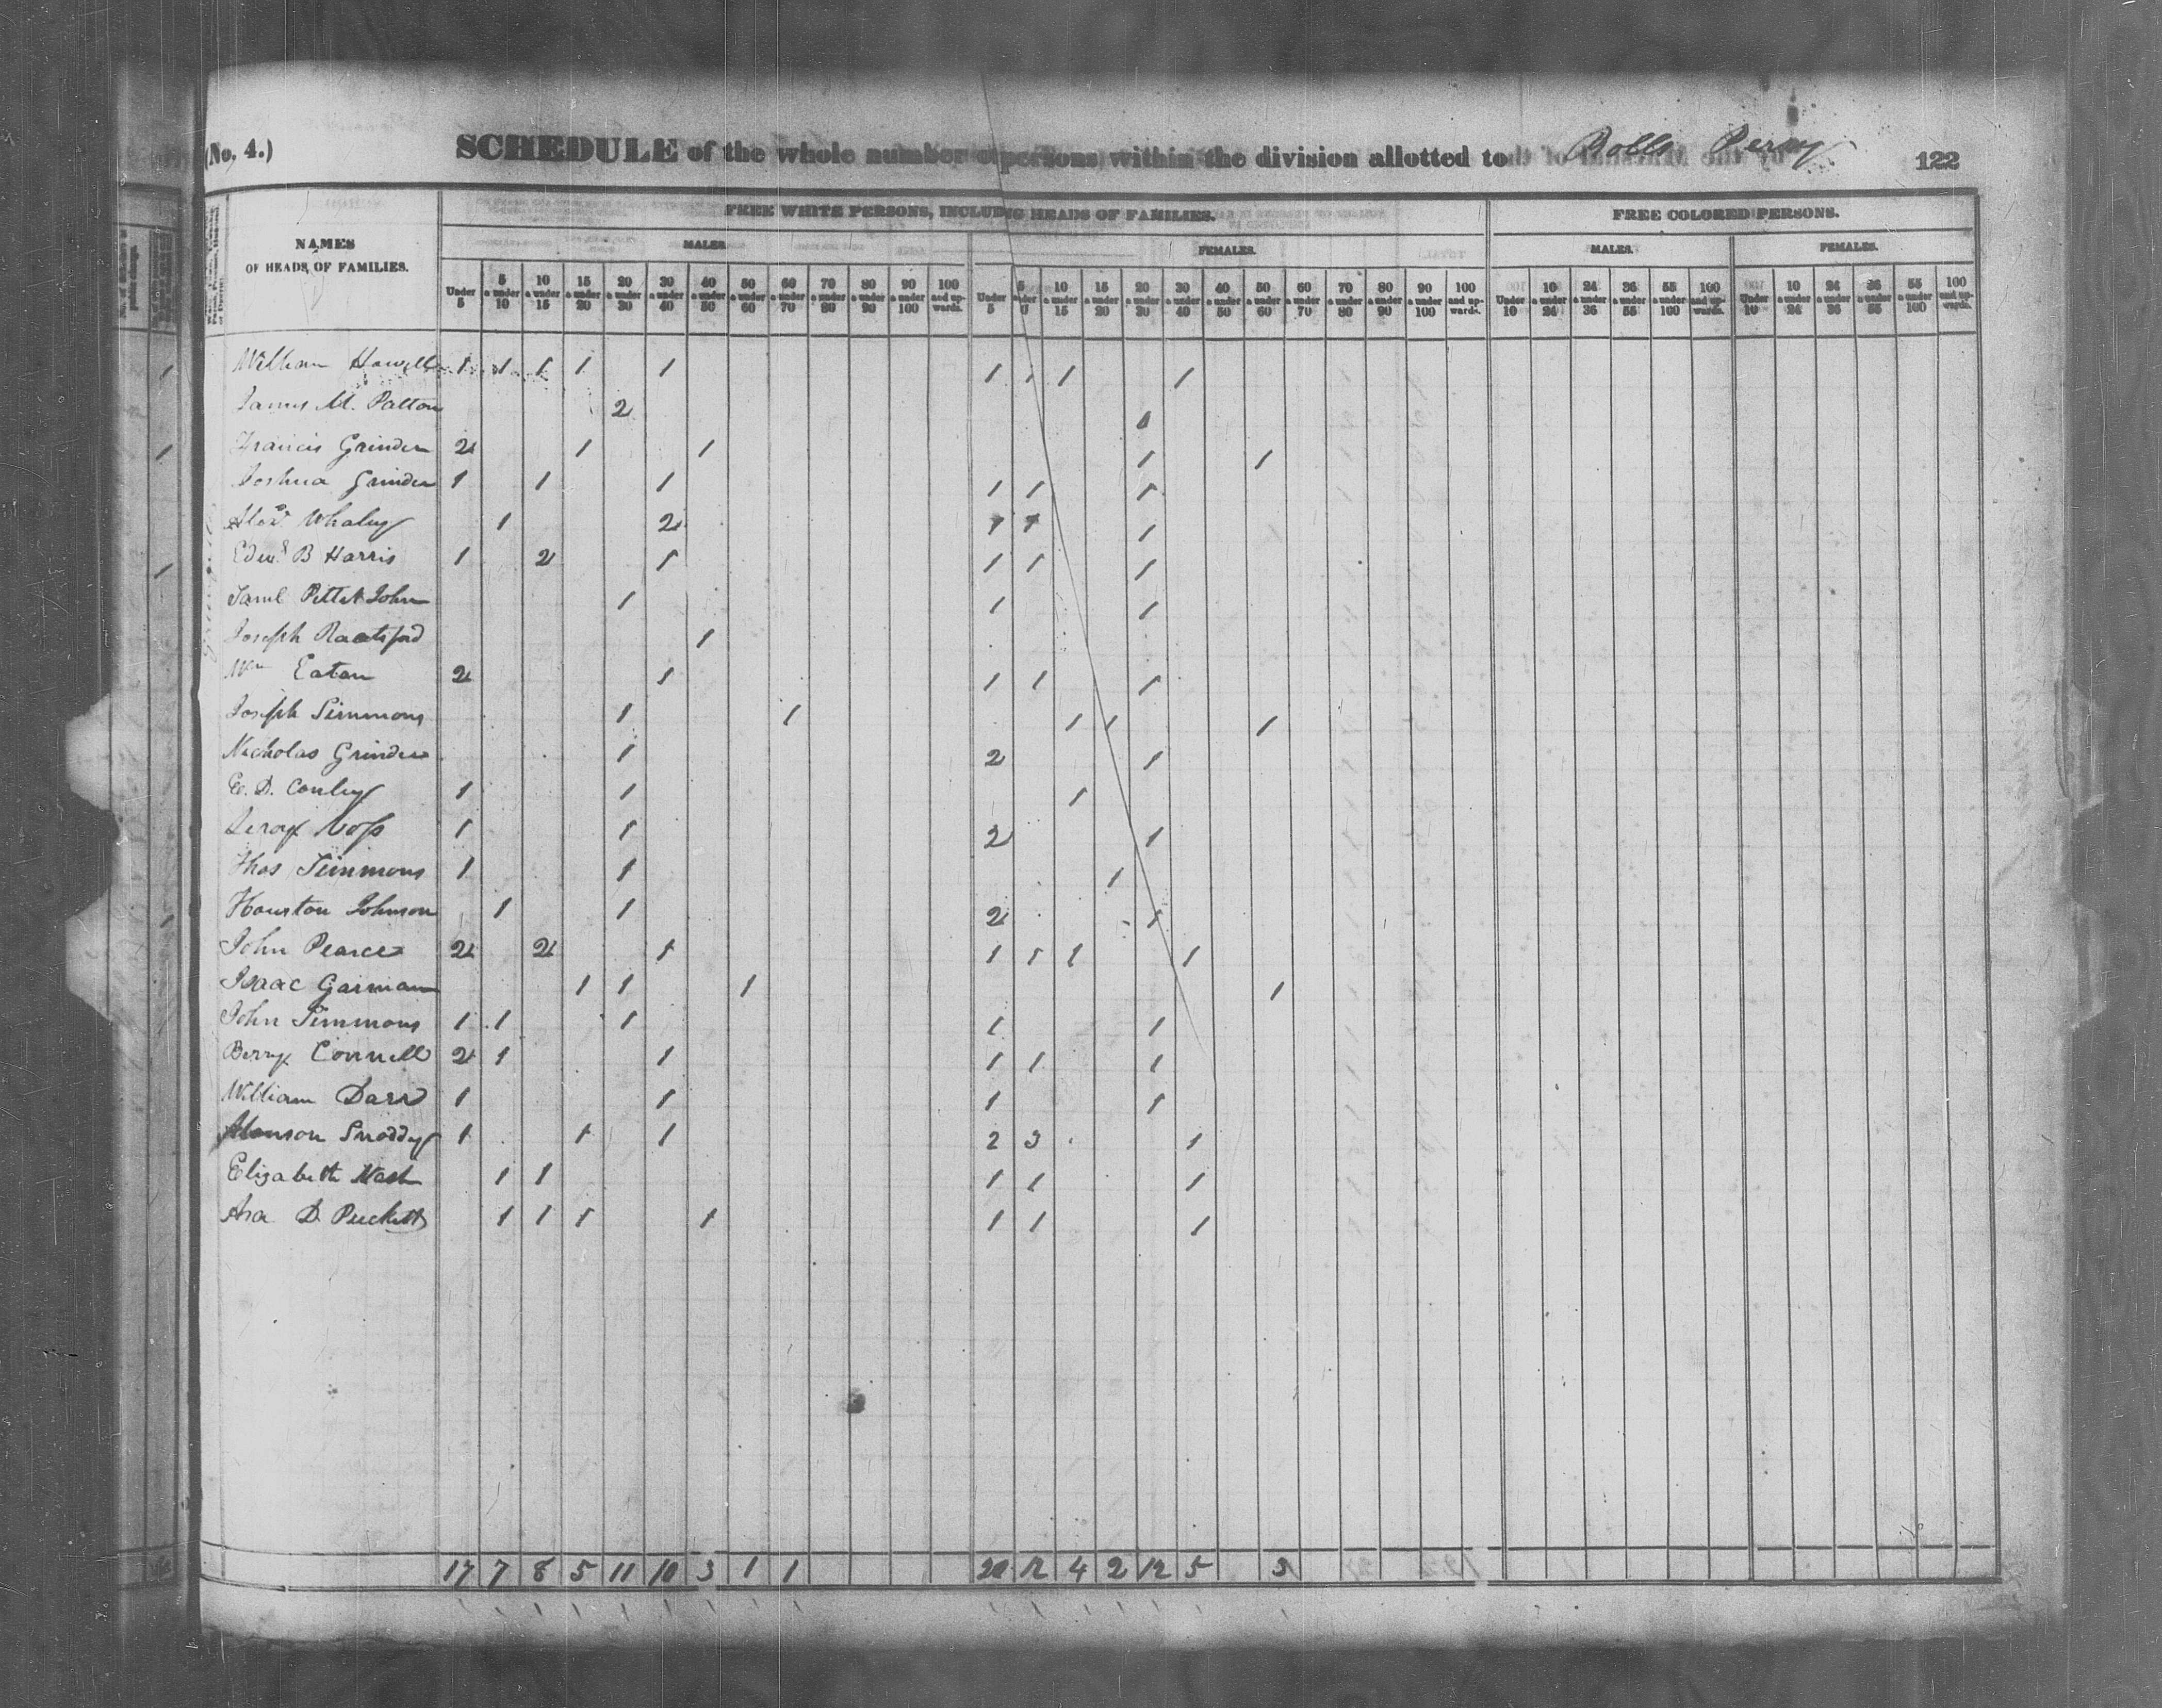 (No. 4.) SCHEDULE of the whole number of persons within the division allotted to Rolls Perry 122
FREE WHITE PERSONS, INCLUDING HEADS OF FAMILIES. FREE COLORED PERSONS.
NAMES OF HEADS OF FAMILIES.
MALES. FEMALES. MALES. FEMALES.
Under 5 5 a under 10 10 a under 15 15 a under 20 20 a under 30 30 a under 40 40 a under 50 50 a under 60 60 a under 70 70 a under 80 80 a under 90 90 a under 100 100 and up-wards. Under 5 5 a under 10 a under 15 15 a under 20 20 a under 30 30 a under 40 40 a under 50 50 a under 60 60 a under 70 70 a under 80 80 a under 90 90 a under 100 100 and up-wards. Under 10 10 a under 24 24 a under 36 36 a under 55 55 a under 100 100 and up-wards. Under 10 10 a under 24 24 a under 36 36 a under 55 55 a under 100 100 and up-wards.
William Howell 1 1 1 1 1 1 1 1 1
James M. Patton 2
Francis Grinder 2 1 1 1 1
Joshua Grinder 1 1 1 1 1 1
Alexr. Whaley 1 2 1 1 1
Edwd B Harris 1 2 1 1 1 1
Saml Pettit John 1 1 1
Joseph 1
Wm Eaton 2 1 1 1 1
Joseph Simmons 1 1 1 1 1
Nicholas Grinder 1 2 1
E. D. Conley 1 1 1
Leroy Voss 1 1 2 1
Thos Simmons 1 1 1
Houston Johnson 1 1 2 1
John Pearce 2 2 1 1 1 1 1
Isaac Garman 1 1 1 1
John Simmons 1 1 1 1 1
Berry Connell 2 1 1 1 1 1
William Darr 1 1 1 1
Snoddy 1 1 1 2 3 1
Elizabeth Nash 1 1 1 1 1
Asa D. Puckett 1 1 1 1 1 1 1
17 7 8 5 11 10 3 1 1 20 12 4 2 12 5 3